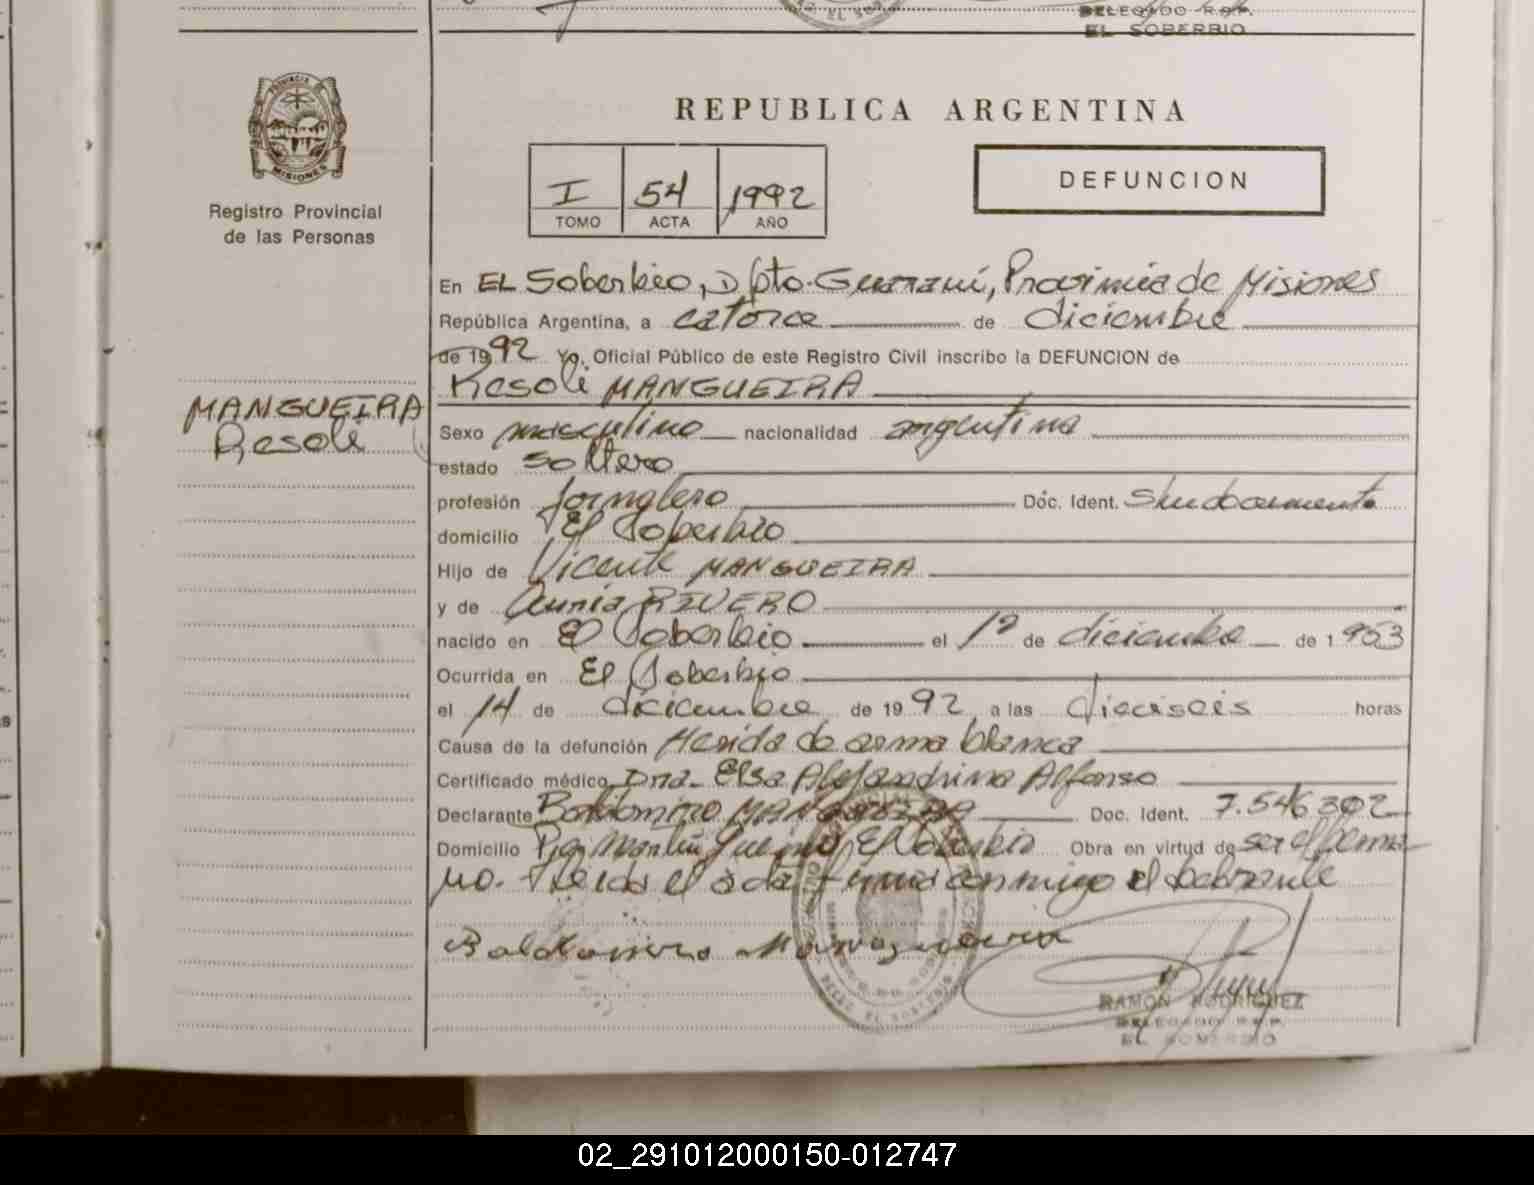 DELEGADO R.P.P.
EL SOBERBIO
PROVINCIA DE
MISIONES
Registro Provincial
de las Personas
REPUBLICA ARGENTINA
I 54 1992
TOMO ACTA AÑO
DEFUNCION
En EL Soberbio, Dpto. Guaraní, Provincia de Misiones
República Argentina, a catorce de diciembre
de 1992 Yo, Oficial Público de este Registro Civil inscribo la DEFUNCION de
Resoli MANGUEIRA
MANGUEIRA
Resoli
Sexo masculino nacionalidad argentina
estado soltero
profesión jornalero Dóc. Ident. Sin documento
domicilio El Soberbio
Hijo de Vicente MANGUEIRA
y de RIVERO
nacido en El Soberbio el 1º de diciembre de 1953
Ocurrida en El Soberbio
el 14 de diciembre de 1992 a las dieciseis horas
Causa de la defunción Herida de arma blanca
Certificado médico Dra. Elsa Alejandrina Alfonso
Declarante Baldomiro MANGUEIRA Doc. Ident. 7.546302
Domicilio El Soberbio Obra en virtud de ser el herma
no. Leida el acta firma conmigo el declarante
Baldomiro Mangueira
RAMON RODRIGUEZ
DELEGADO R.P.P.
EL SOBERBIO
02_291012000150-012747